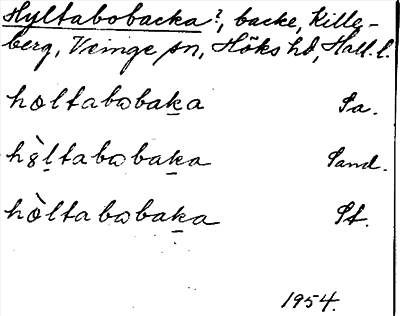 Hyltabobacka?, backe, Kille-
berg, Veinge sn, Höks hd, Hall. l.
hɷltabɷbaka Sa.
hɷ̀ltabɷbaka Sand.
hɷ̀ltabɷbaka St.
1954.